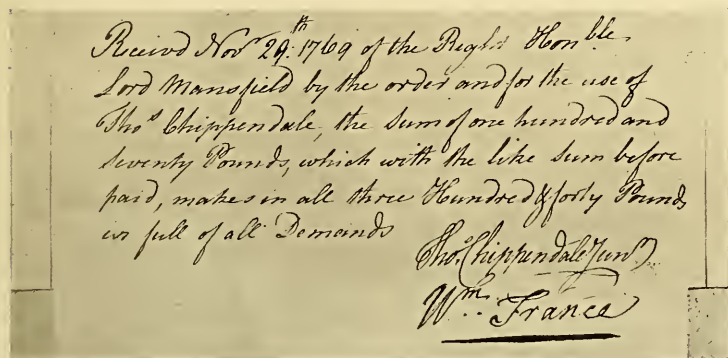 Receivd Novr 29th 1769 of the Right Honble
Lord Mansfield by the order and for the use of
Thos Chippendale, the Sum of one hundred and
Seventy Pounds, which with the like Sum before
paid, makes in all three Hundred & forty Pounds
in full of all Demands
Thos Chippendale Junr
Wm. France